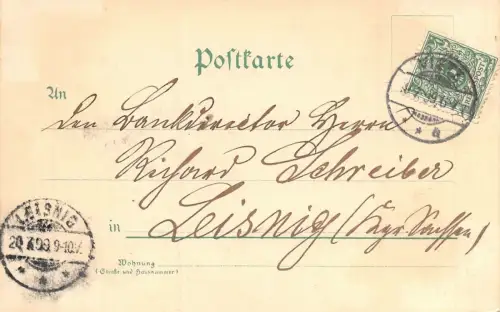 Postkarte
An
den Bankdirector Herrn
Richard Schreiber
in Leisnig (Kgr. Sachsen)
Wohnung
(Straße und Hausnummer)
LEISNIG
9-10V.